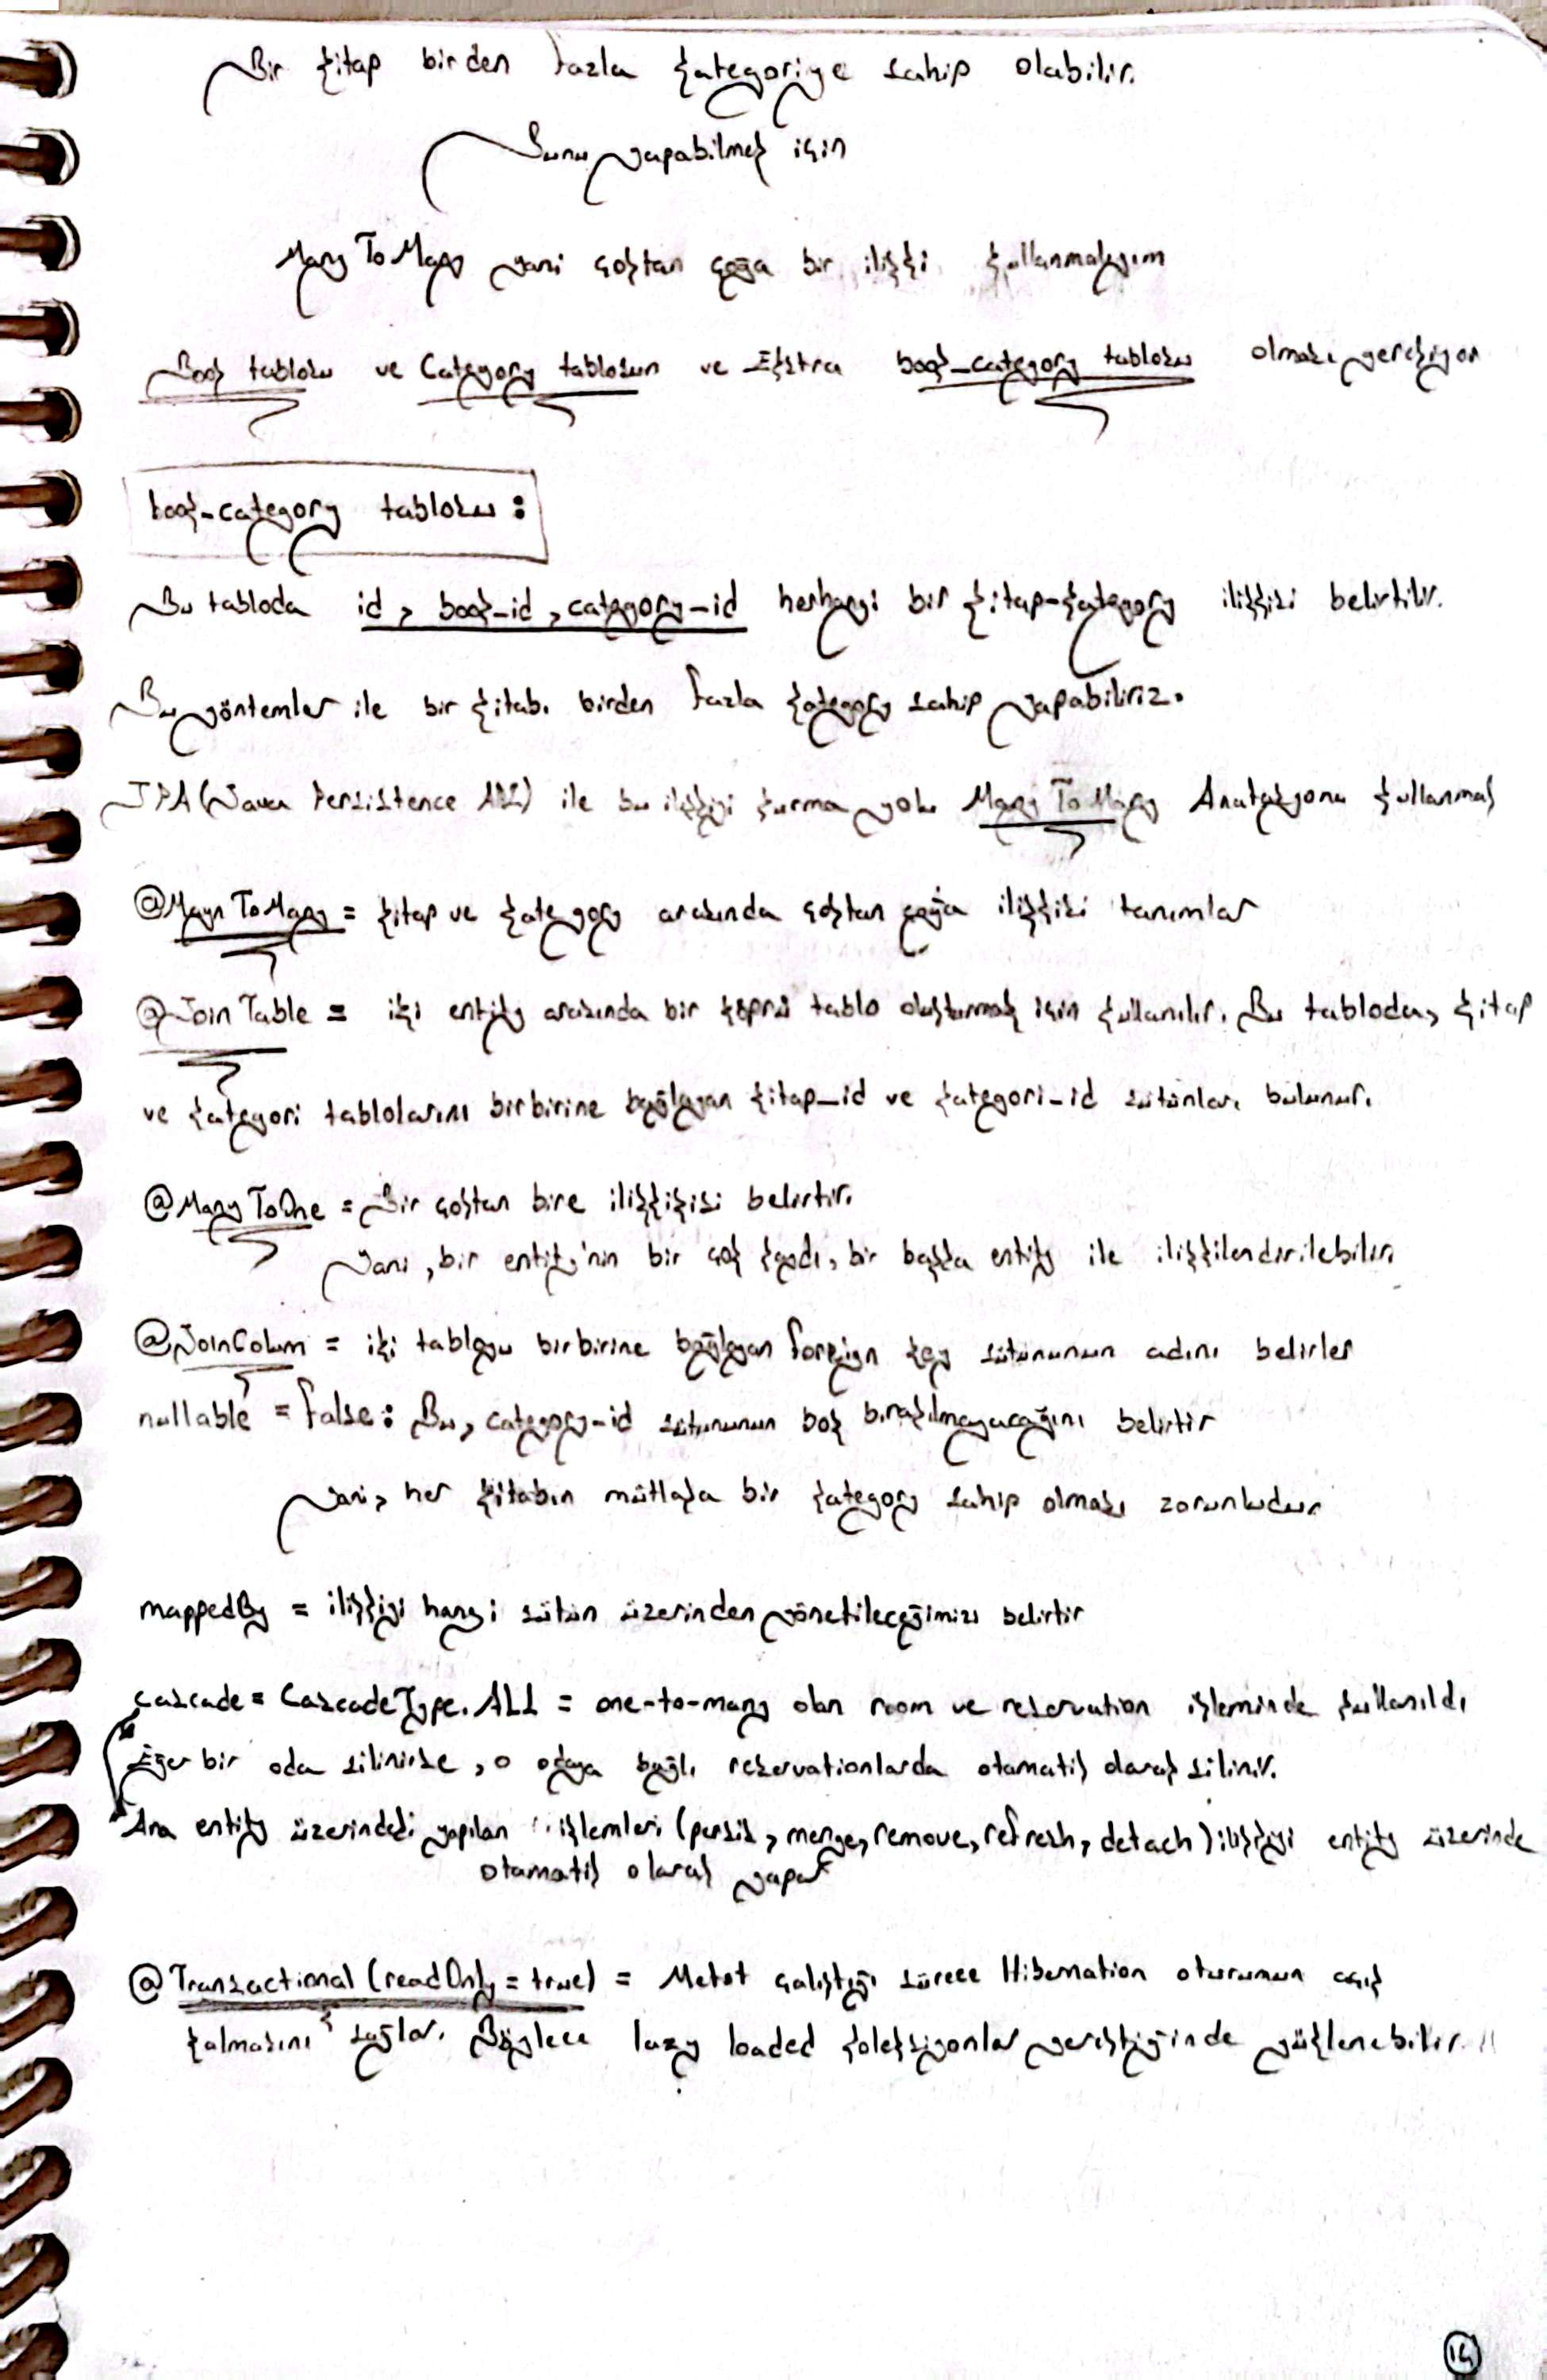 Bir kitap birden fazla kategoriye sahip olabilir.
Bunu yapabilmek için
Many To Many yani çoktan çoğa bir ilişki kullanmalıyım
Book tablosu ve Category tablosun ve Ekstra book_category tablosu olması gerekiyor
book-category tablosu :
Bu tabloda id, book-id, category-id herhangi bir kitap-kategory ilişkisi belirtilir.
Bu yöntemler ile bir kitabı birden fazla kategory sahip yapabiliriz.
JPA (Java Persistence API) ile bu ilişkiyi kurma yolu Many To Many Anatasyonu kullanmak
@Mayn To Many = kitap ve kategory arasında çoktan çoğa ilişkisi tanımlar
@Join Table = iki entity arasında bir köprü tablo oluşturmak için kullanılır. Bu tabloda, kitap
ve kategori tablolarını birbirine bağlayan kitap_id ve kategori-id sütünları bulunur.
@Many ToOne = Bir çoktan bire ilişkikisi belirtir.
Yani, bir entity'nin bir çok kaydı, bir başka entity ile ilişkilendirilebilir.
@JoinColum = iki tabloyu birbirine bağlayan foreign key sütununun adını belirler
nullable = false : Bu, category-id sütununun boş bırakılmayacağını belirtir
Yani, her kitabın mütlaka bir kategory sahip olması zorunludur
mappedBy = ilişkiyi hangi sütün üzerinden yönetileceğimizi belirtir
cascade = CascadeType.ALL = one-to-many olan room ve reservation işleminde kullanıldı
Eğer bir oda silinirse, o odaya bağlı reservationlarda otamatik olarak silinir.
Ana entity üzerindeki yapılan işlemleri (persis, merge, remove, refresh, detach) ilişkiyi entity üzerinde
otamatik olarak yapar
@Transactional (readOnly = true) = Metot çalıştığı sürece Hibernation oturumun açık
kalmasını sağlar. Böylece lazy loaded koleksiyonlar gerektiğinde yüklenebilir.
14